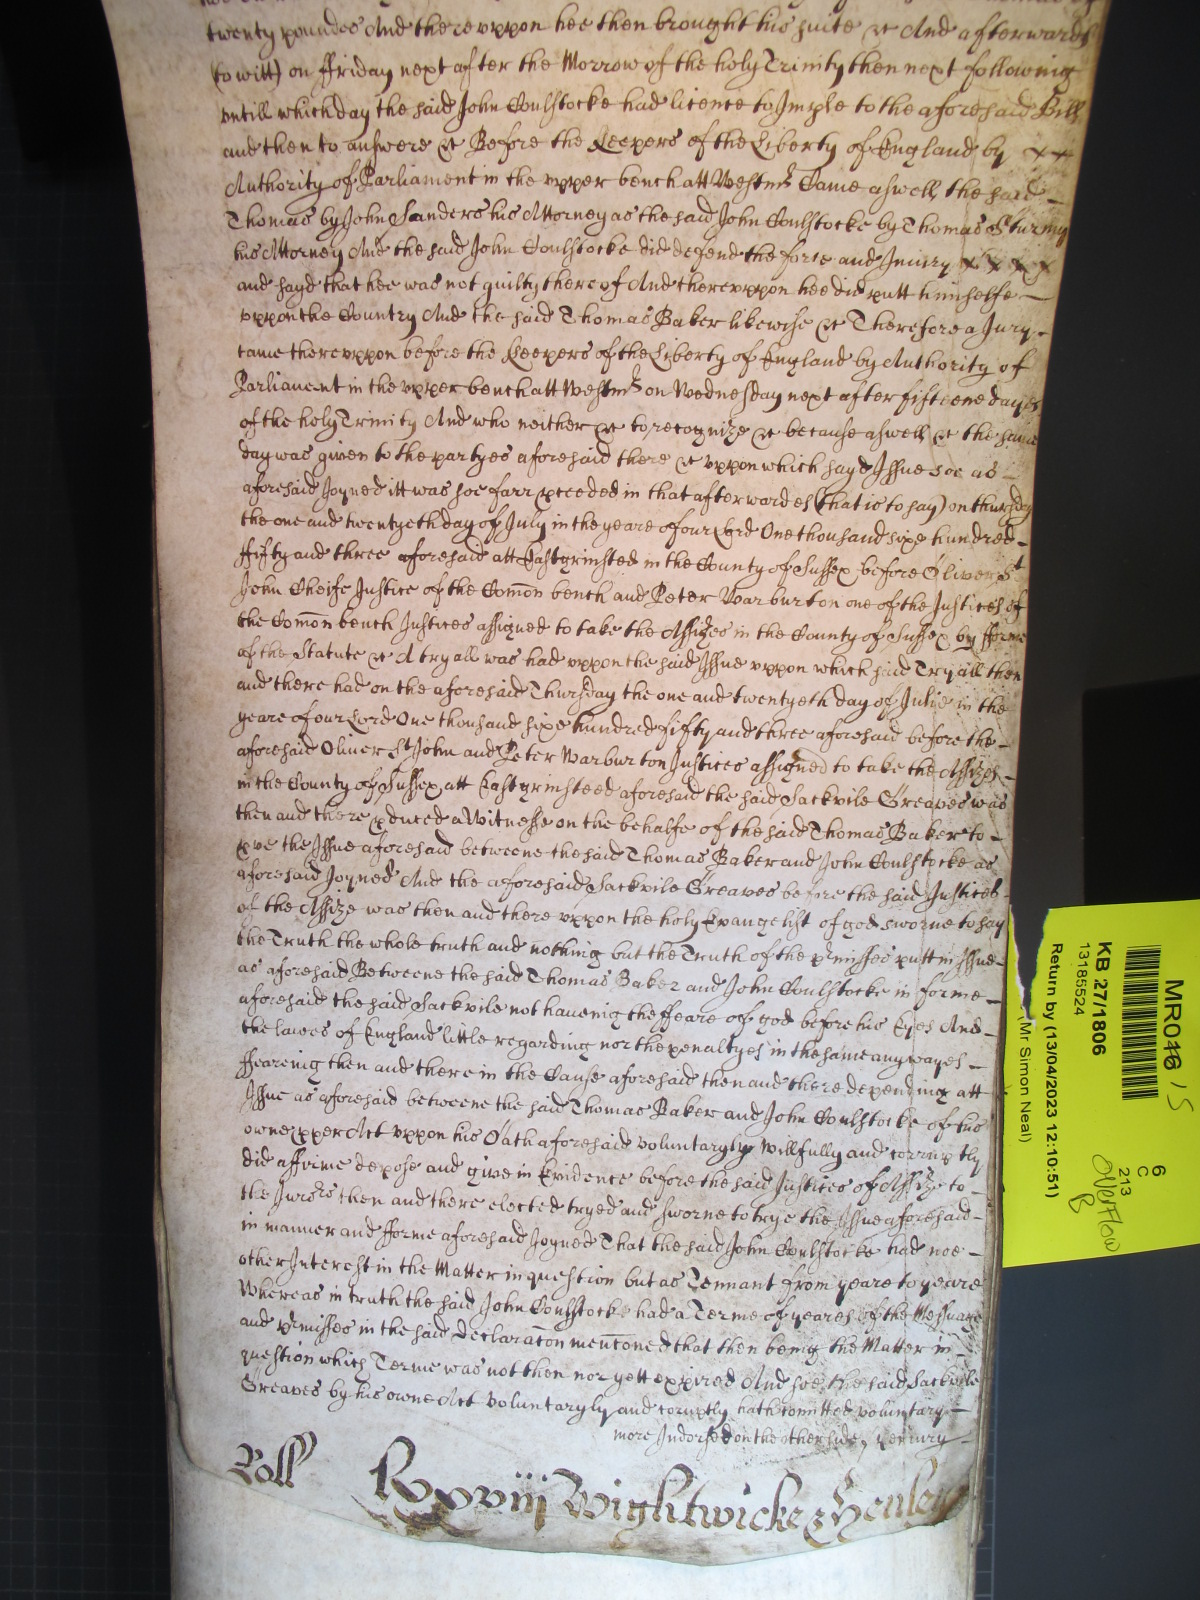 twenty poundes And thereuppon hee then brought his suite &c And afterwards
(to witt) on ffriday next after the Morrow of the holy Trinity then next following
untill which day the said John Coulstocke had licence to Imple to the aforesaid Bill
and then to answere &c Before the Keepers of the Liberty of England by
Authority of Parliament in the upper bench att Westmr Came aswell the said
Thomas by John Sanders his Attorney as the said John Coulstocke by Thomas Sturmy
his Attorney And the said John Coulstocke did defend the force and Iniury
and sayd that hee was not guilty thereof And thereuppon hee did putt himselfe
uppon the Country And the said Thomas Baker likewise &c Therefore a Jury
came thereuppon before the Keepers of the Liberty of England by Authority of
Parliament in the upper bench att Westmr on Wednesday next after fifteene dayes
of the holy Trinity And who neither &c to recognize &c because aswell &c the same
day was given to the partyes aforesaid there &c uppon which sayd Issue soe as
aforesaid Joyned itt was soe farr pceded in that afterwardes (that is to say) on thursday
the one and twentyeth day of July in the yeare of our Lord One thousand sixe hundred
ffifty and three aforesaid att Eastgrinsted in the County of Sussex before Oliver St
John Cheife Justice of the Comon bench and Peter Warburton one of the Justices of
the Comon bench Justices assigned to take the Assizes in the County of Sussex by fforme
of the Statute &c A tryall was had uppon the said Issue uppon which said Tryall then
and there had on the aforesaid Thursday the one and twentyeth day of Julie in the
yeare of our Lord One thousand sixe hundred fifty and three aforesaid before the
aforesaid Oliver St John and Peter Warburton Justices assigned to take the Assizes
in the County of Sussex att Eastgrinsteed aforesaid the said Sackvile Greaves was
then and there pduced a Witnesse on the behalfe of the said Thomas Baker to
pve the Issue aforesaid betweene the said Thomas Baker and John Coulstocke as
aforesaid Joyned And the aforesaid Sackvile Greaves before the said Justices
of the Assize was then and there uppon the holy Evangelist of god sworne to say
the Truth the whole truth and nothing but the Truth of the pmisses putt in Issue
as aforesaid Betweene the said Thomas Baker and John Coulstocke in forme
aforesaid the said Sackvile not haueing the ffeare of god before his Eyes And
the lawes of England little regarding nor the penaltyes in the same any wayes
ffeareing then and there in the Cause aforesaid then and there depending att
Issue as aforesaid betweene the said Thomas Baker and John Coulstocke of his
owne pper Act uppon his Oath aforesaid voluntaryly willfully and corruptly
did affirme depose and give in Evidence before the said Justices of Assize to
the Jurors then and there elected tryed and sworne to trye the Issue aforesaid
in manner and fforme aforesaid Joyned That the said John Coulstocke had noe
other Interest in the Matter in question but as Tennant from yeare to yeare
Whereas in truth the said John Coulstocke had a Terme of yeares of the Messuage
and pmisses in the said declaracon mencioned that then being the Matter in
question which Terme was not then nor yett expired And soe the said Sackvile
Greaves by his owne Act voluntaryly and coruptly hath comitted voluntary
more Indorsed on the other side periury
Roll Rxxviij Wightwicke & Henley
MR046 / 5
KB 27/1806
13185524
Return by (13/04/2023 12:10:51)
(Mr Simon Neal)
6
C
213
Overflow
B